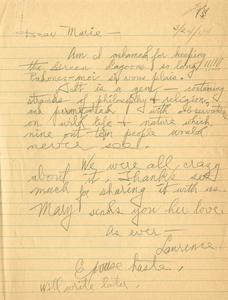 Dear Marie —
Am I ashamed for keeping
the Green Lagoons so long !!!!!
Pardonez-moi si vous plais.
It is a gem — containing
strands of philosophy & religion,
are pigmented with observations
on wild life & nature which
nine out ten people would
never see.
We were all crazy
about it. Thanks so
much for sharing it with us
Mary sends you her love.
As ever —
Lawrence.
Excuse haste,
will write later.